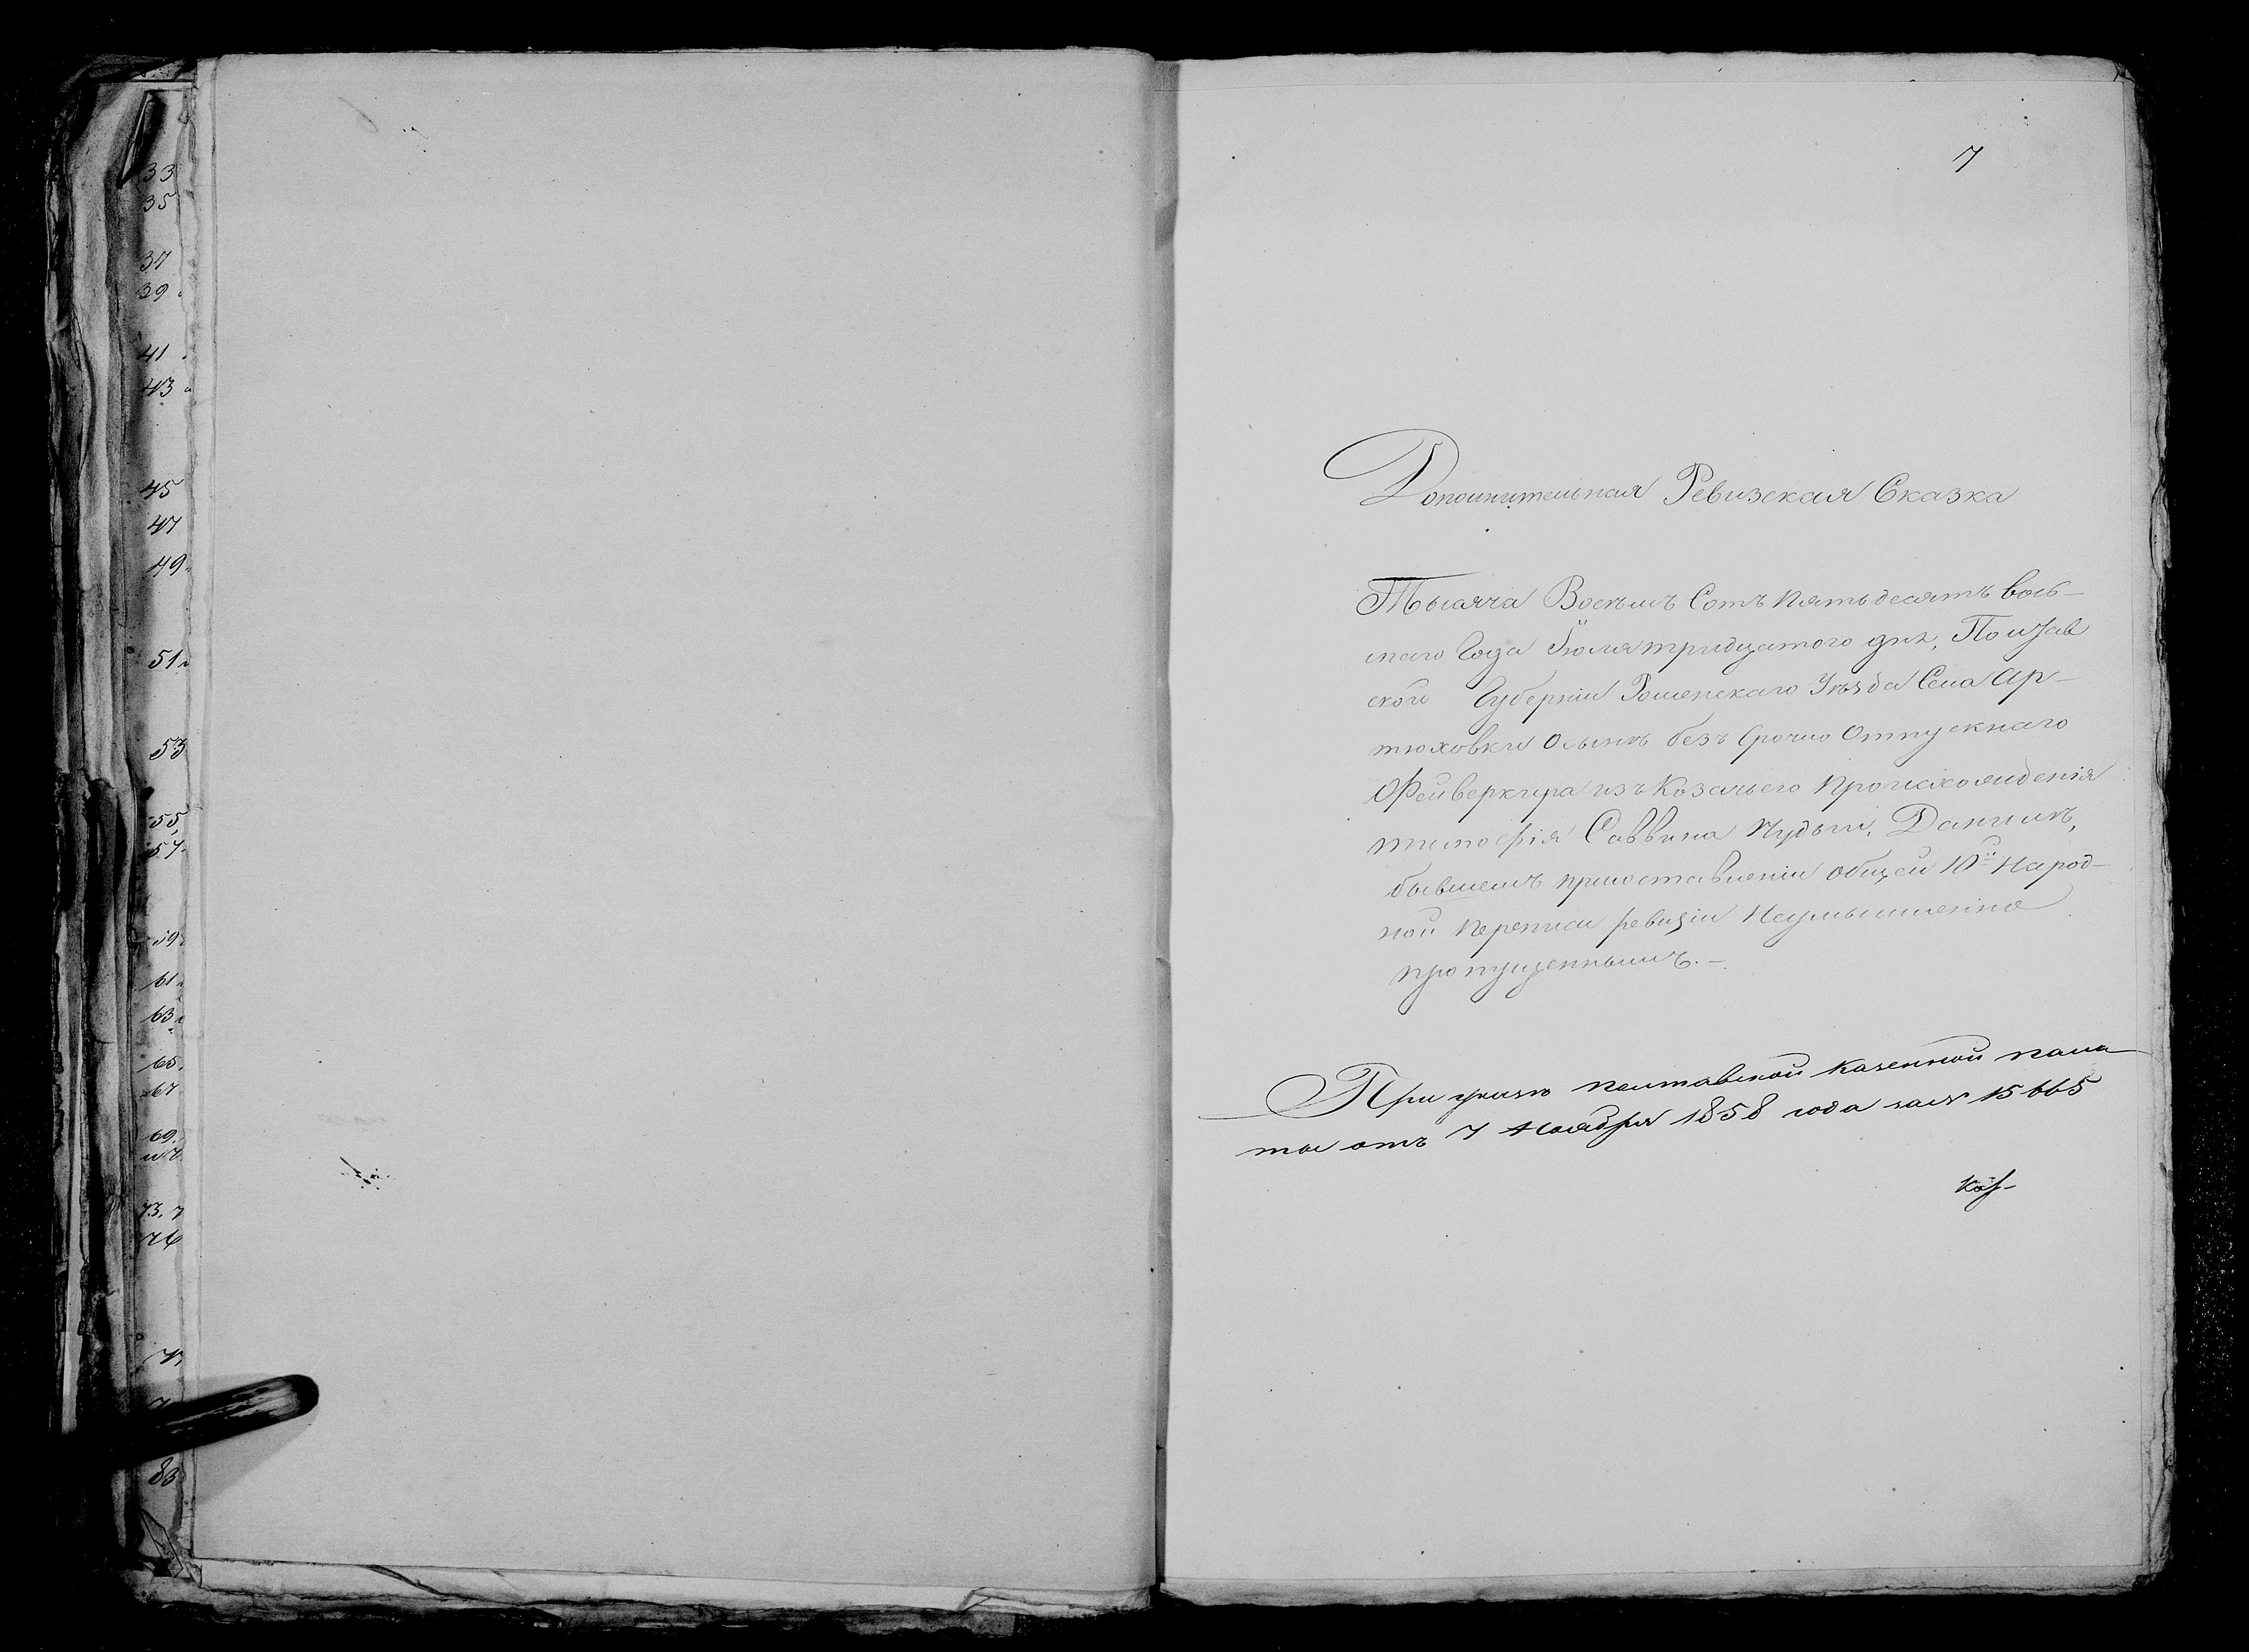 33
35
37
39
41
43
45
47
49
51
53
55
57
59
61
63
65
67
69
73
83
7
Дополнительная Ревизская Сказка
Тысяча Восемь Сотъ Пятьдесятъ вось-
маго Года Іюля тридцатого дня, Полтав
ской Губерніи Роменскаго Уезда Села Ар-
тюховки Осынѣ безъ Срочно Отпускнаго
Фейверкира изъ Козачьего Происхожденія
тимофія Саввина Чудыи, Данилѣ,
бывшемъ присоставленіи общей 10й Народ-
ной Переписи ревизіи Неумышленно
пропущеннымъ.-
При указѣ полтавской казенной пала
ты отъ 7 Ноября 1858 года за № 15665